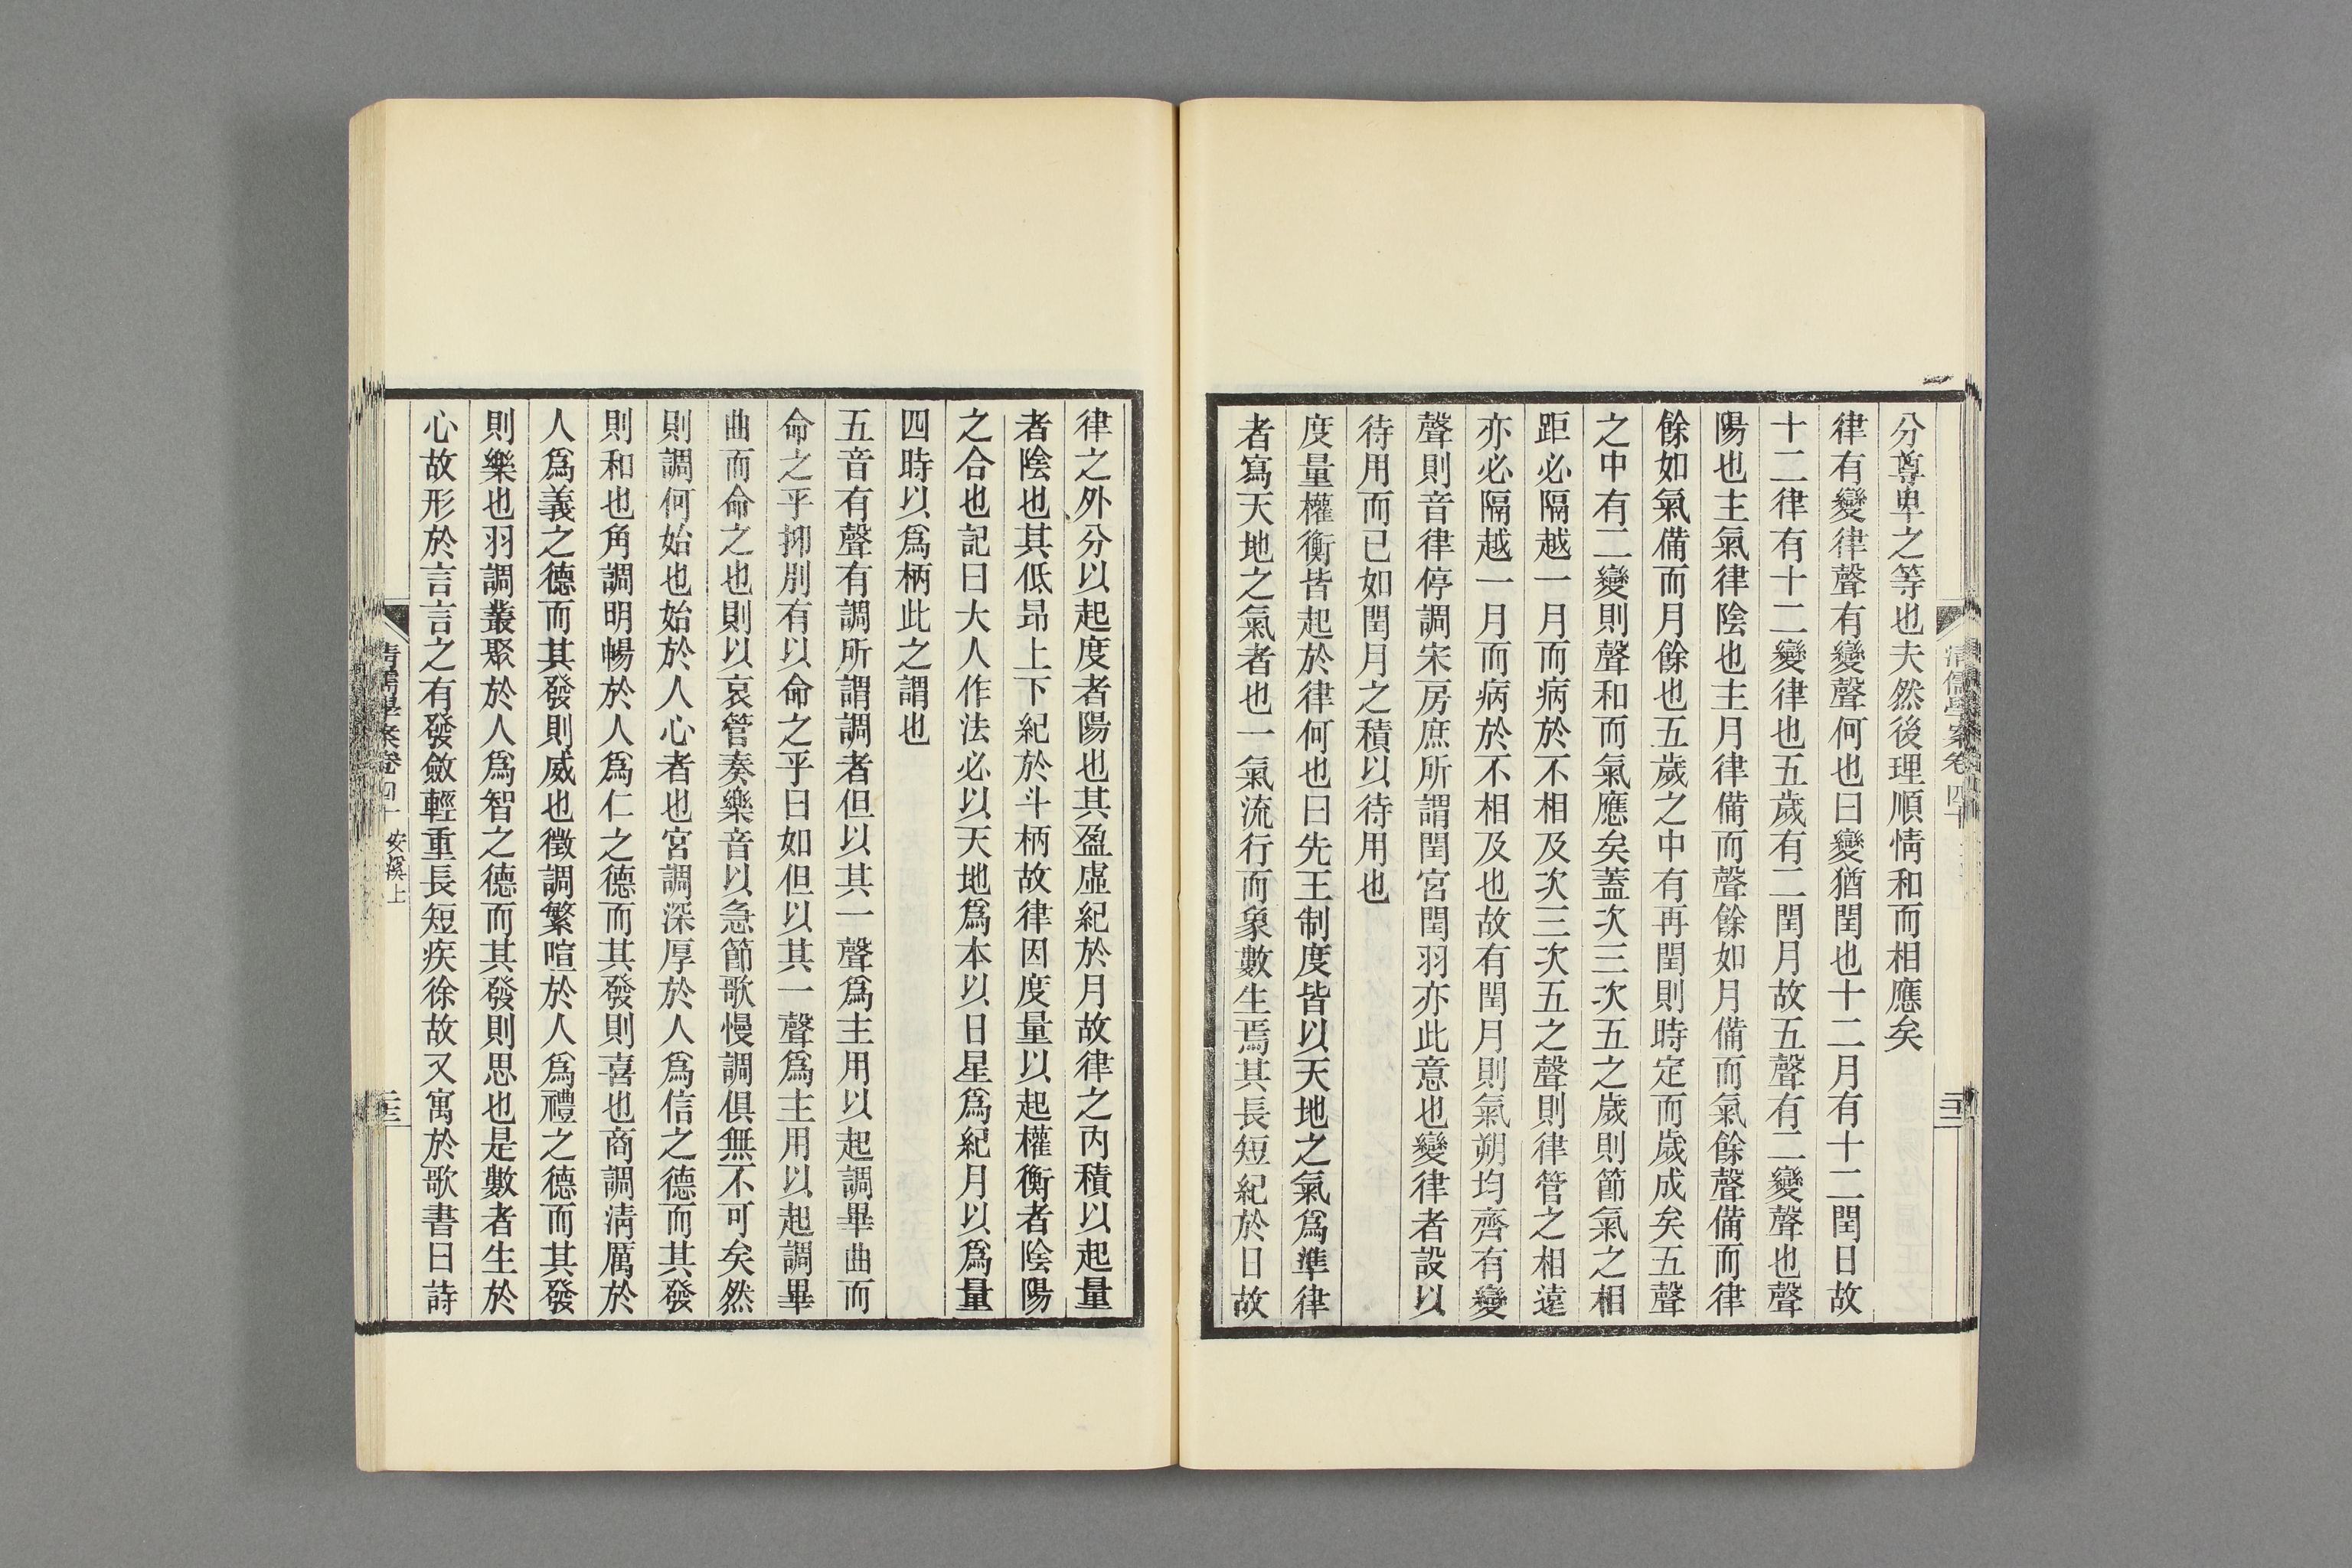 分尊卑之等也夫然後理順情和而相應矣
律有變律聲有變聲何也曰變猶閏也十二月有十二閏日故
十二律有十二變律也五歲有二閏月故五聲有二變聲也聲
陽也主氣律陰也主月律備而聲餘如月備而氣餘聲備而律
餘如氣備而月餘也五歲之中有再閏則時定而歲成矣五聲
之中有二變則聲和而氣應矣蓋次三次五之歲則節氣之相
距必隔越一月而病於不相及次三次五之聲則律管之相遠
亦必隔越一月而病於不相及也故有閏月則氣朔均齊有變
聲則音律停調宋房庶所謂閏宮閏羽亦此意也變律者設以
待用而已如閏月之積以待用也
度量權衡皆起於律何也曰先王制度皆以天地之氣爲準律
者寫天地之氣者也一氣流行而象數生焉其長短紀於日故
律之外分以起度者陽也其盈虛紀於月故律之內積以起量
者陰也其低昂上下紀於斗柄故律因度量以起權衡者陰陽
之合也記曰大人作法必以天地爲本以日星爲紀月以爲量
四時以爲柄此之謂也
五音有聲有調所謂調者但以其一聲爲主用以起調畢曲而
命之乎抑別有以命之乎曰如但以其一聲爲主用以起調畢
曲而命之也則以哀管奏樂音以急節歌慢調俱無不可矣然
則調何始也始於人心者也宮調深厚於人爲信之德而其發
則和也角調明暢於人爲仁之德而其發則喜也商調淸厲於
人爲義之德而其發則威也徵調繁喧於人爲禮之德而其發
則樂也羽調叢聚於人爲智之德而其發則思也是數者生於
心故形於言言之有發斂輕重長短疾徐故又寓於歌書曰詩
清儒學案卷四十 安溪上